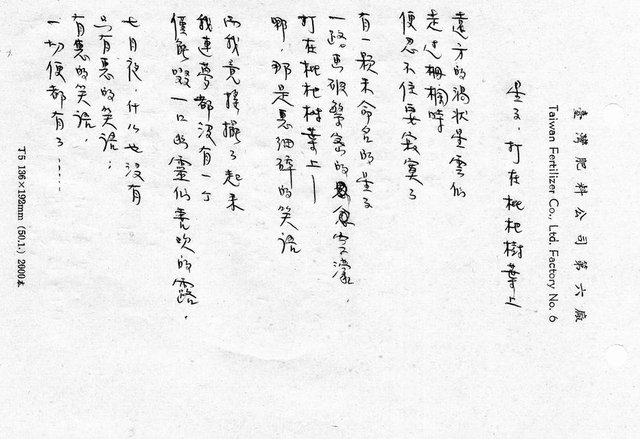 臺灣肥料公司第六廠
Taiwan Fertilizer Co., Ltd. Factory No. 6
星子,打在枇杷樹葉上
遠方的渦狀星雲似
走過柵欄時
便忍不住要寂寞了
有一顆未命名的星子
一路 破 密的 穹濛,
打在枇杷樹葉上—
哪,那是惠細碎的笑語
而我竟搖擺了起來
我連夢都沒有一個
僅能啜一口 靈似 的露,
七月夜,什么也沒有
只有惠的笑語;
有惠的笑語,
一切便都有了……
T5 136×192mm (50.1.) 2000本